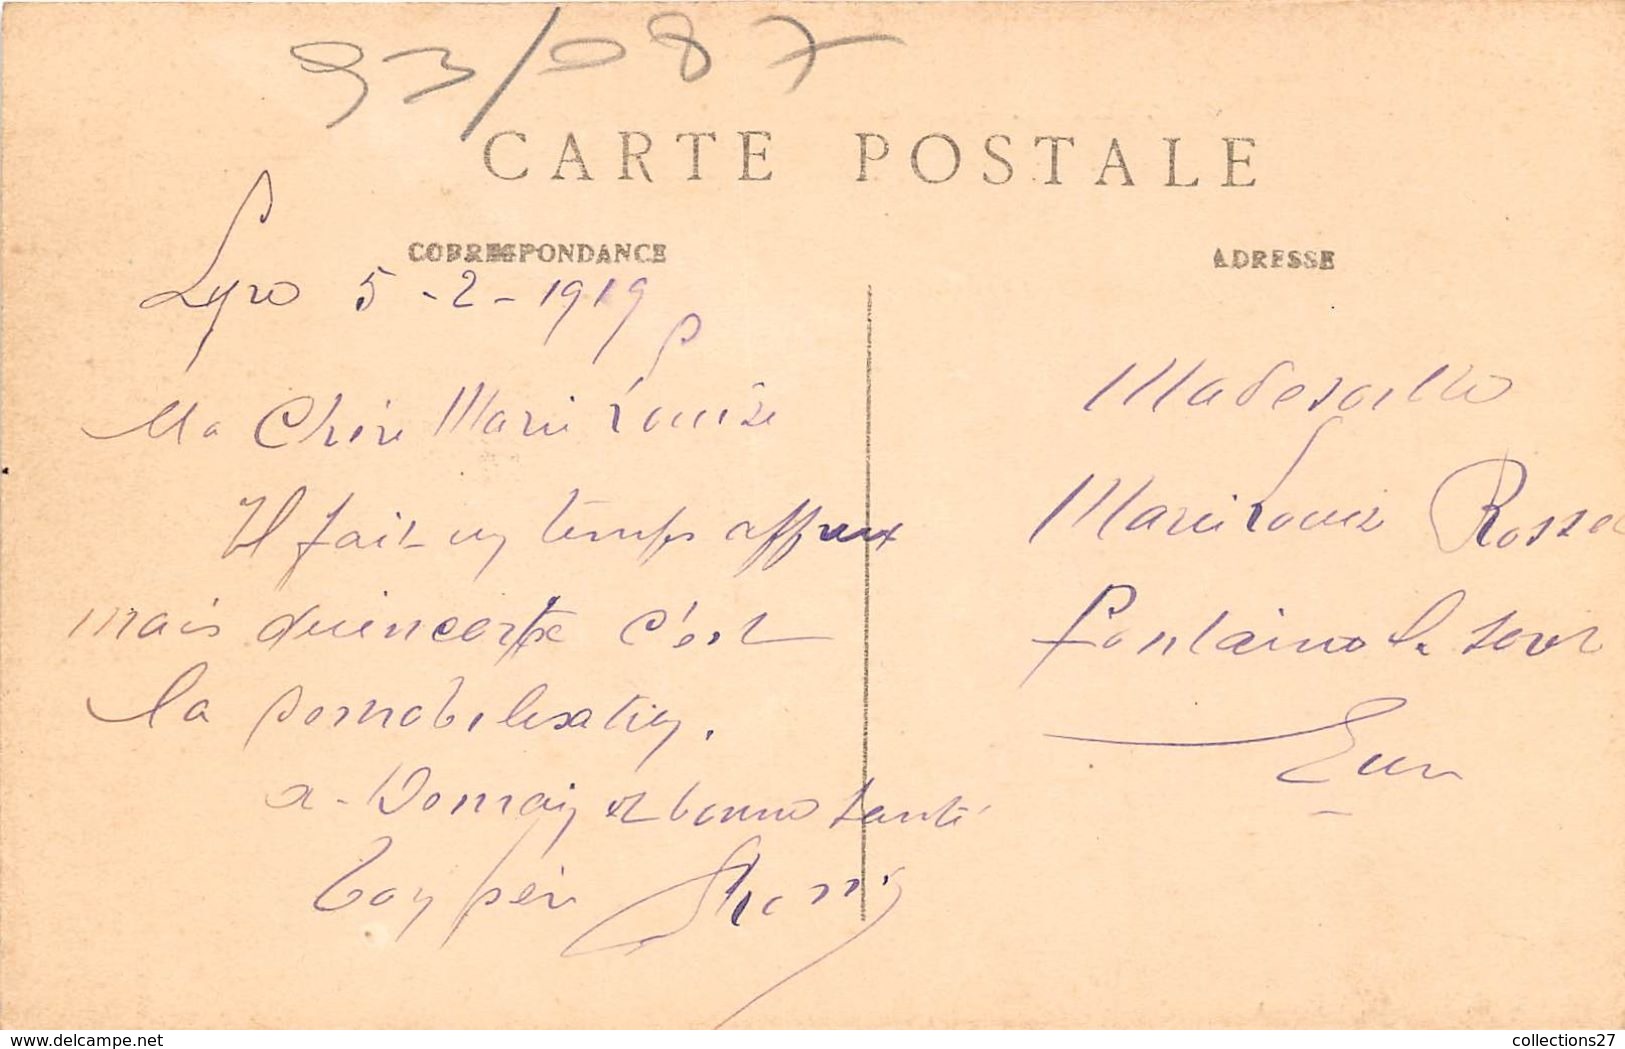 93/087
CARTE POSTALE
CORRESPONDANCE
ADRESSE
5-2-1919
Ma Chère Marie Louise
Il fait un temps affreux
mais qu'importe c'est
la demobilisation.
a Demain et bonne santé
Ton père
Mademoiselle
Marie Louise
Fontaine la Soret
Eure
delcampe.net
collections27